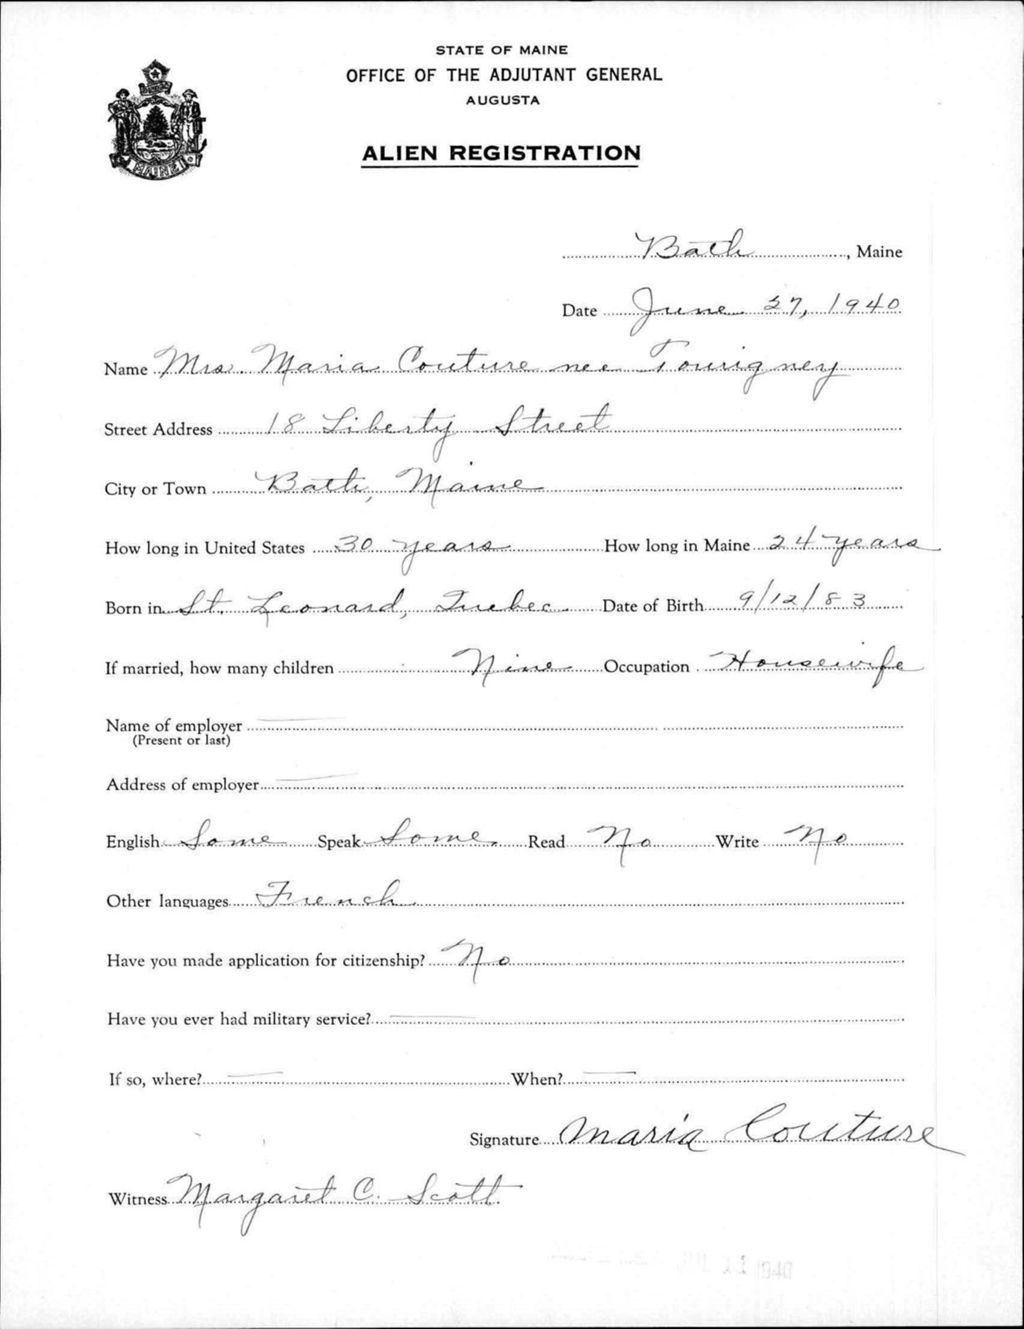 STATE OF MAINE
OFFICE OF THE ADJUTANT GENERAL
AUGUSTA
ALIEN REGISTRATION
MAINE
Bath, Maine
Date June 27, 1940
Name Mrs. Maria Couture nee Tourigney
Street Address 18 Liberty Street
City or Town Bath, Maine
How long in United States 30 years How long in Maine 24 years
Born in St. Leonard, Quebec Date of Birth 9/12/83
If married, how many children Nine Occupation Housewife
Name of employer
(Present or last)
Address of employer
English Some Speak Some. Read No Write No
Other languages French
Have you made application for citizenship? No
Have you ever had military service?
If so, where? When?
Signature Maria Couture
Witness Margaret C. Scott